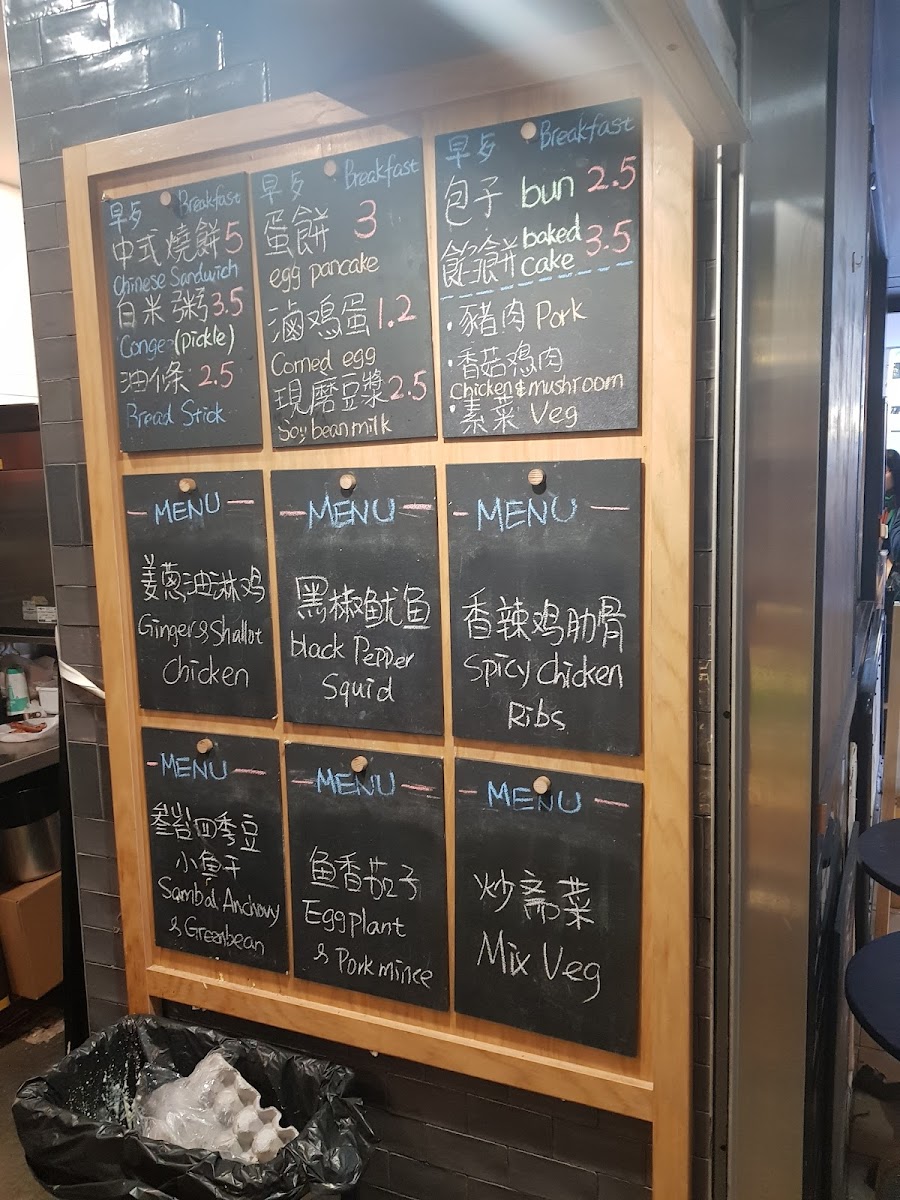 早歺 Breakfast
中式燒餅 5
Chinese Sandwich
白米粥 3.5
Conge (pickle)
油條 2.5
Bread Stick
早歺 Breakfast
蛋餅 3
egg pancake
滷鸡蛋 1.2
Corned egg
現磨豆漿 2.5
Soy bean milk
早歺 Breakfast
包子 bun 2.5
餡餅 baked cake 3.5
·豬肉 Pork
·香菇鸡肉
Chicken & mushroom
·素菜 Veg
MENU
姜蔥油淋鸡
Ginger & Shallot
Chicken
MENU
黑椒鱿鱼
black Pepper
Squid
MENU
香辣鸡肋骨
Spicy Chicken
Ribs
MENU
四季豆
小鱼干
Sambal Anchovy
& Greenbean
MENU
鱼香茄子
Eggplant
& Pork mince
MENU
炒斋菜
Mix Veg